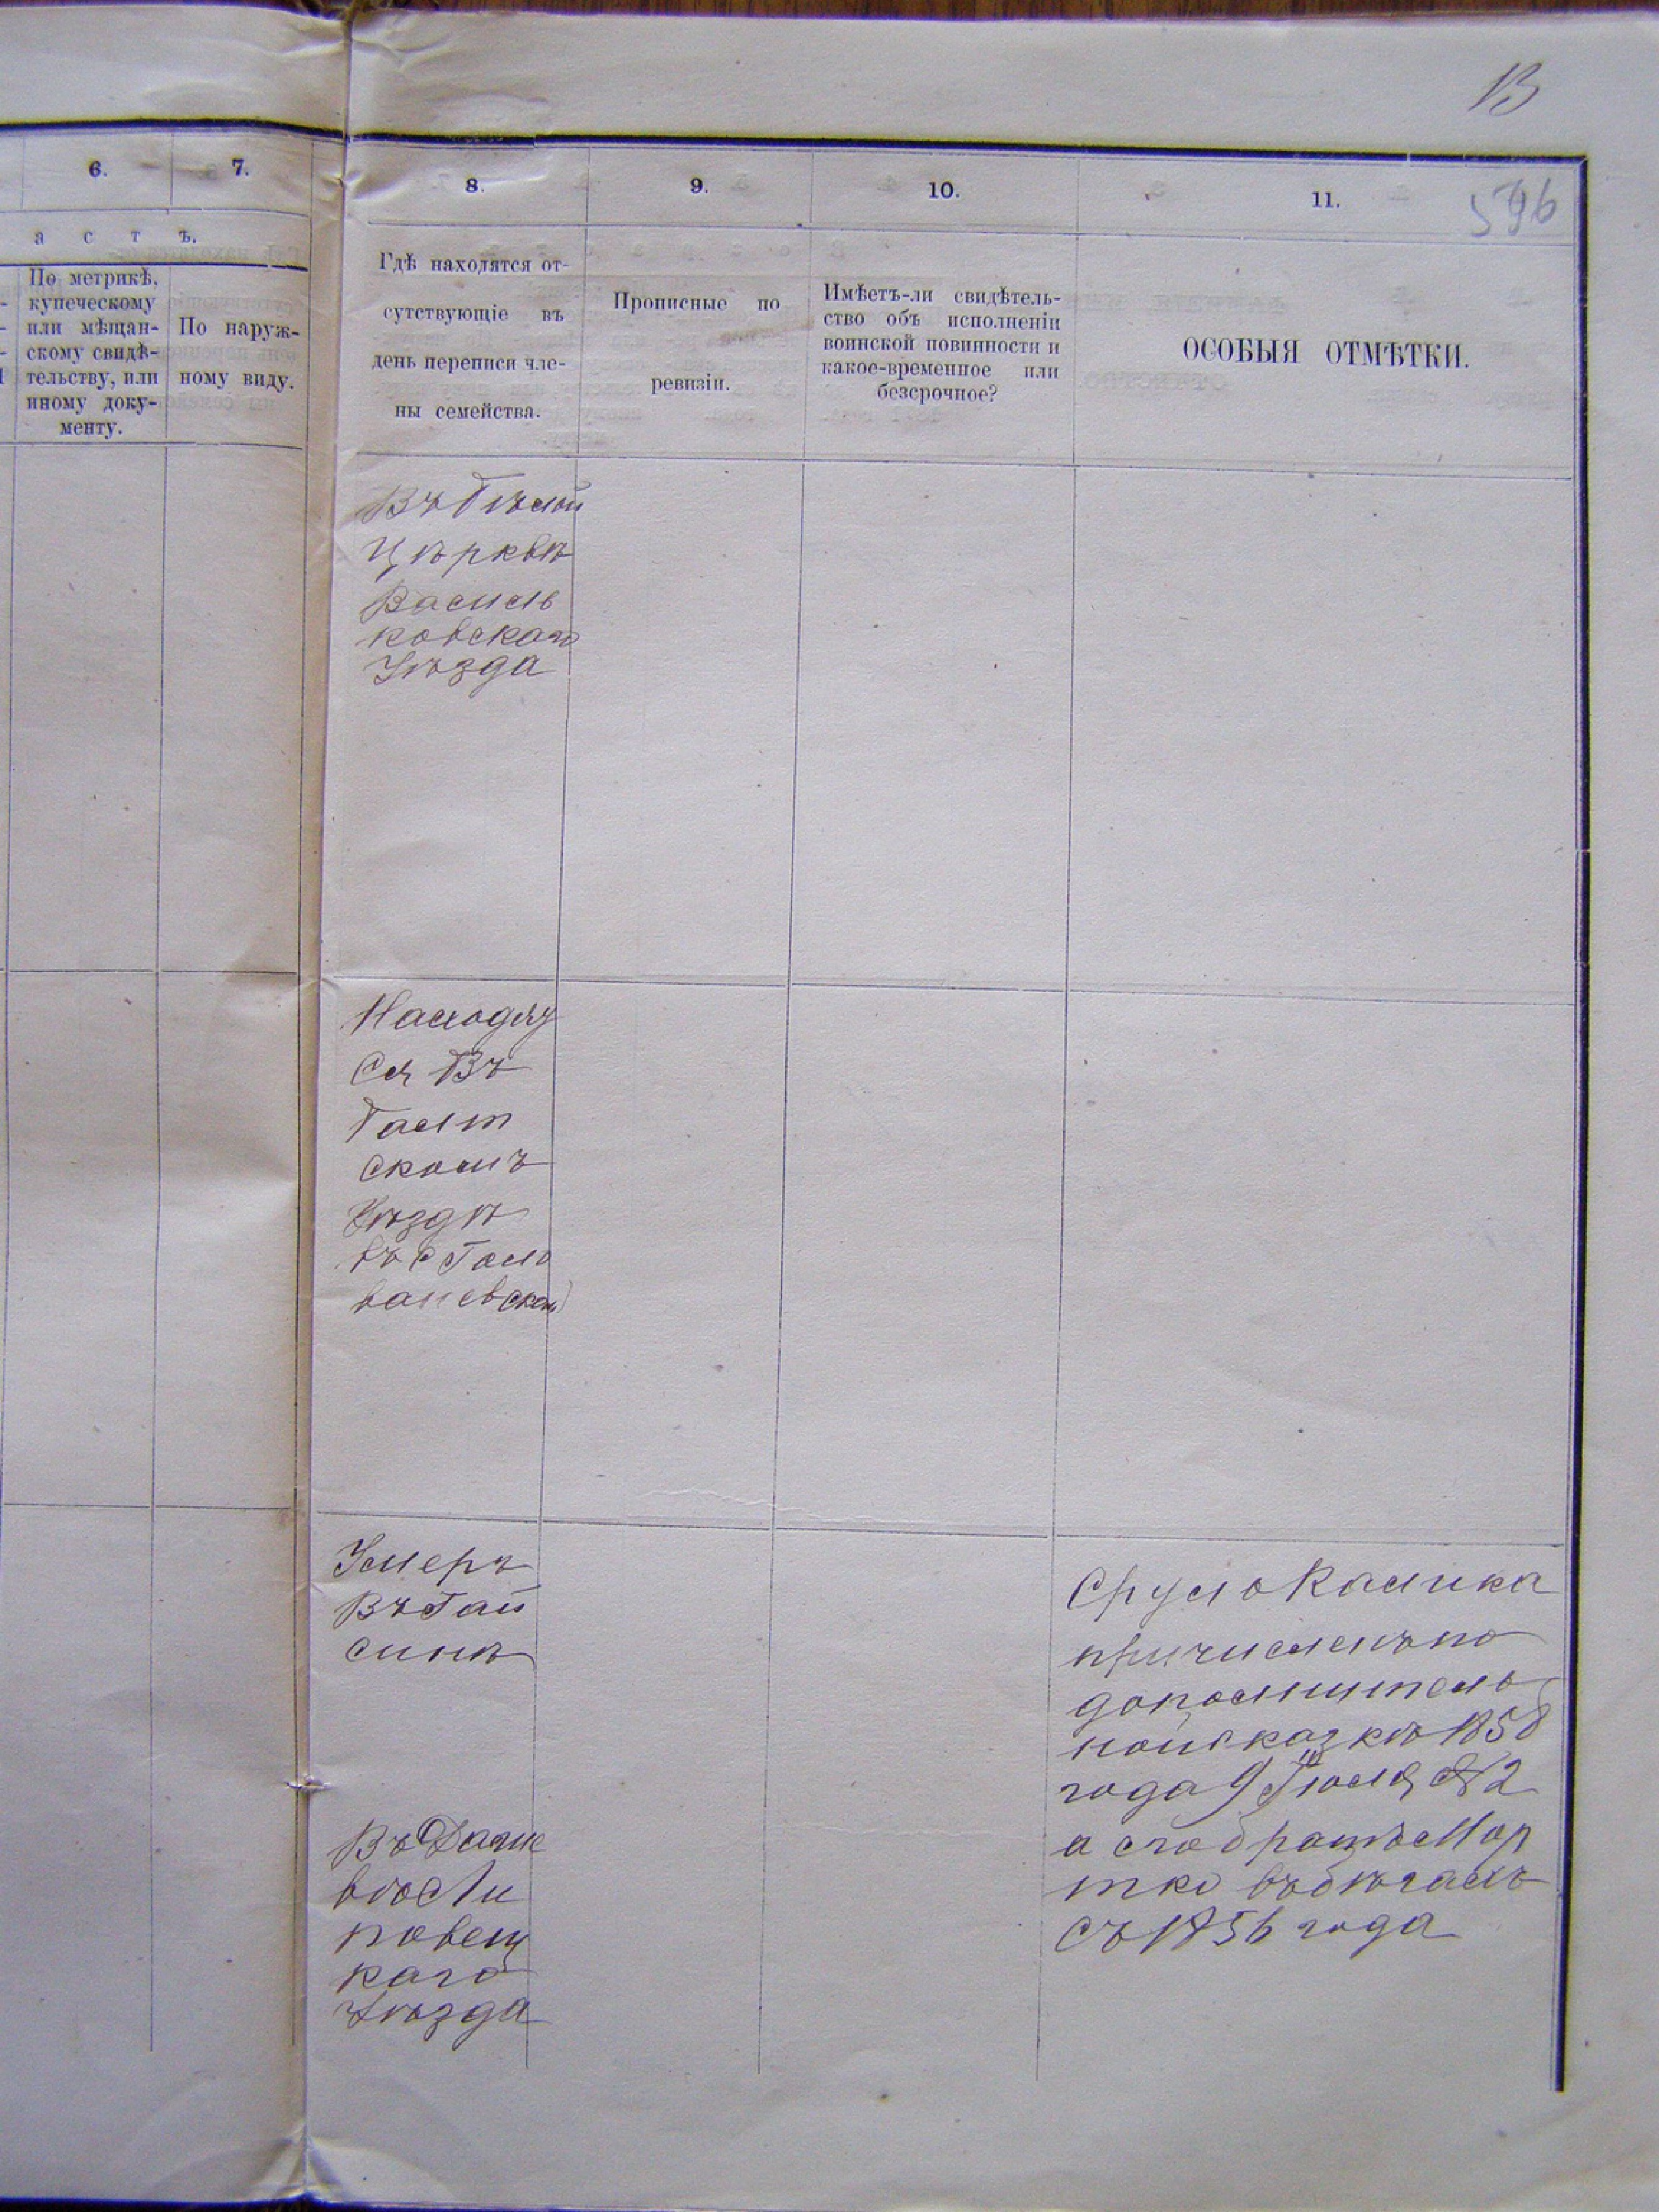 13
596
6.
7.
8.
9.
10.
11.
а с т ъ.
По метрикѣ,
купеческому
или мѣщан-
скому свидѣ-
тельству, или
иному доку-
менту.
По наруж-
ному виду.
Гдѣ находятся от-
сутствующіе въ
день переписи чле-
ны семейства.
Прописные по
ревизіи.
Имѣетъ-ли свидѣтель-
ство объ исполненіи
воинской повинности и
какое-временное или
безсрочное?
ОСОБЫЯ ОТМѢТКИ.
Въ Бѣлой
Цѣрквѣ
Василь
ковскаго
Уѣзда
Находят
ся Въ
Балт
скомъ
Уѣздѣ
въ Голо
ваневском
Умеръ
Въ Гай
синѣ
Въ
Ли
повец
каго
Уѣзда
Сруль Калика
причисленъ по
дополнитель
ной сказкѣ 1858
года 9 Іюля №2
а его братъ Мор
тко въ бѣгахъ
съ 1856 года